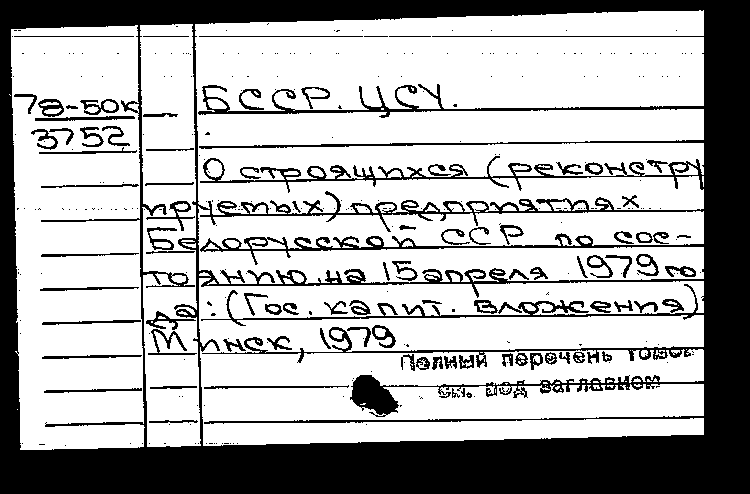 78-50к
3752
БССР. ЦСУ.
О строящихся (реконстру
ируемых) предприятиях
Белорусской ССР по сос-
тоянию на 15 апреля 1979 го
да: (Гос. капит. вложения)
Минск, 1979.
Полный перечень томов
см. под заглавием